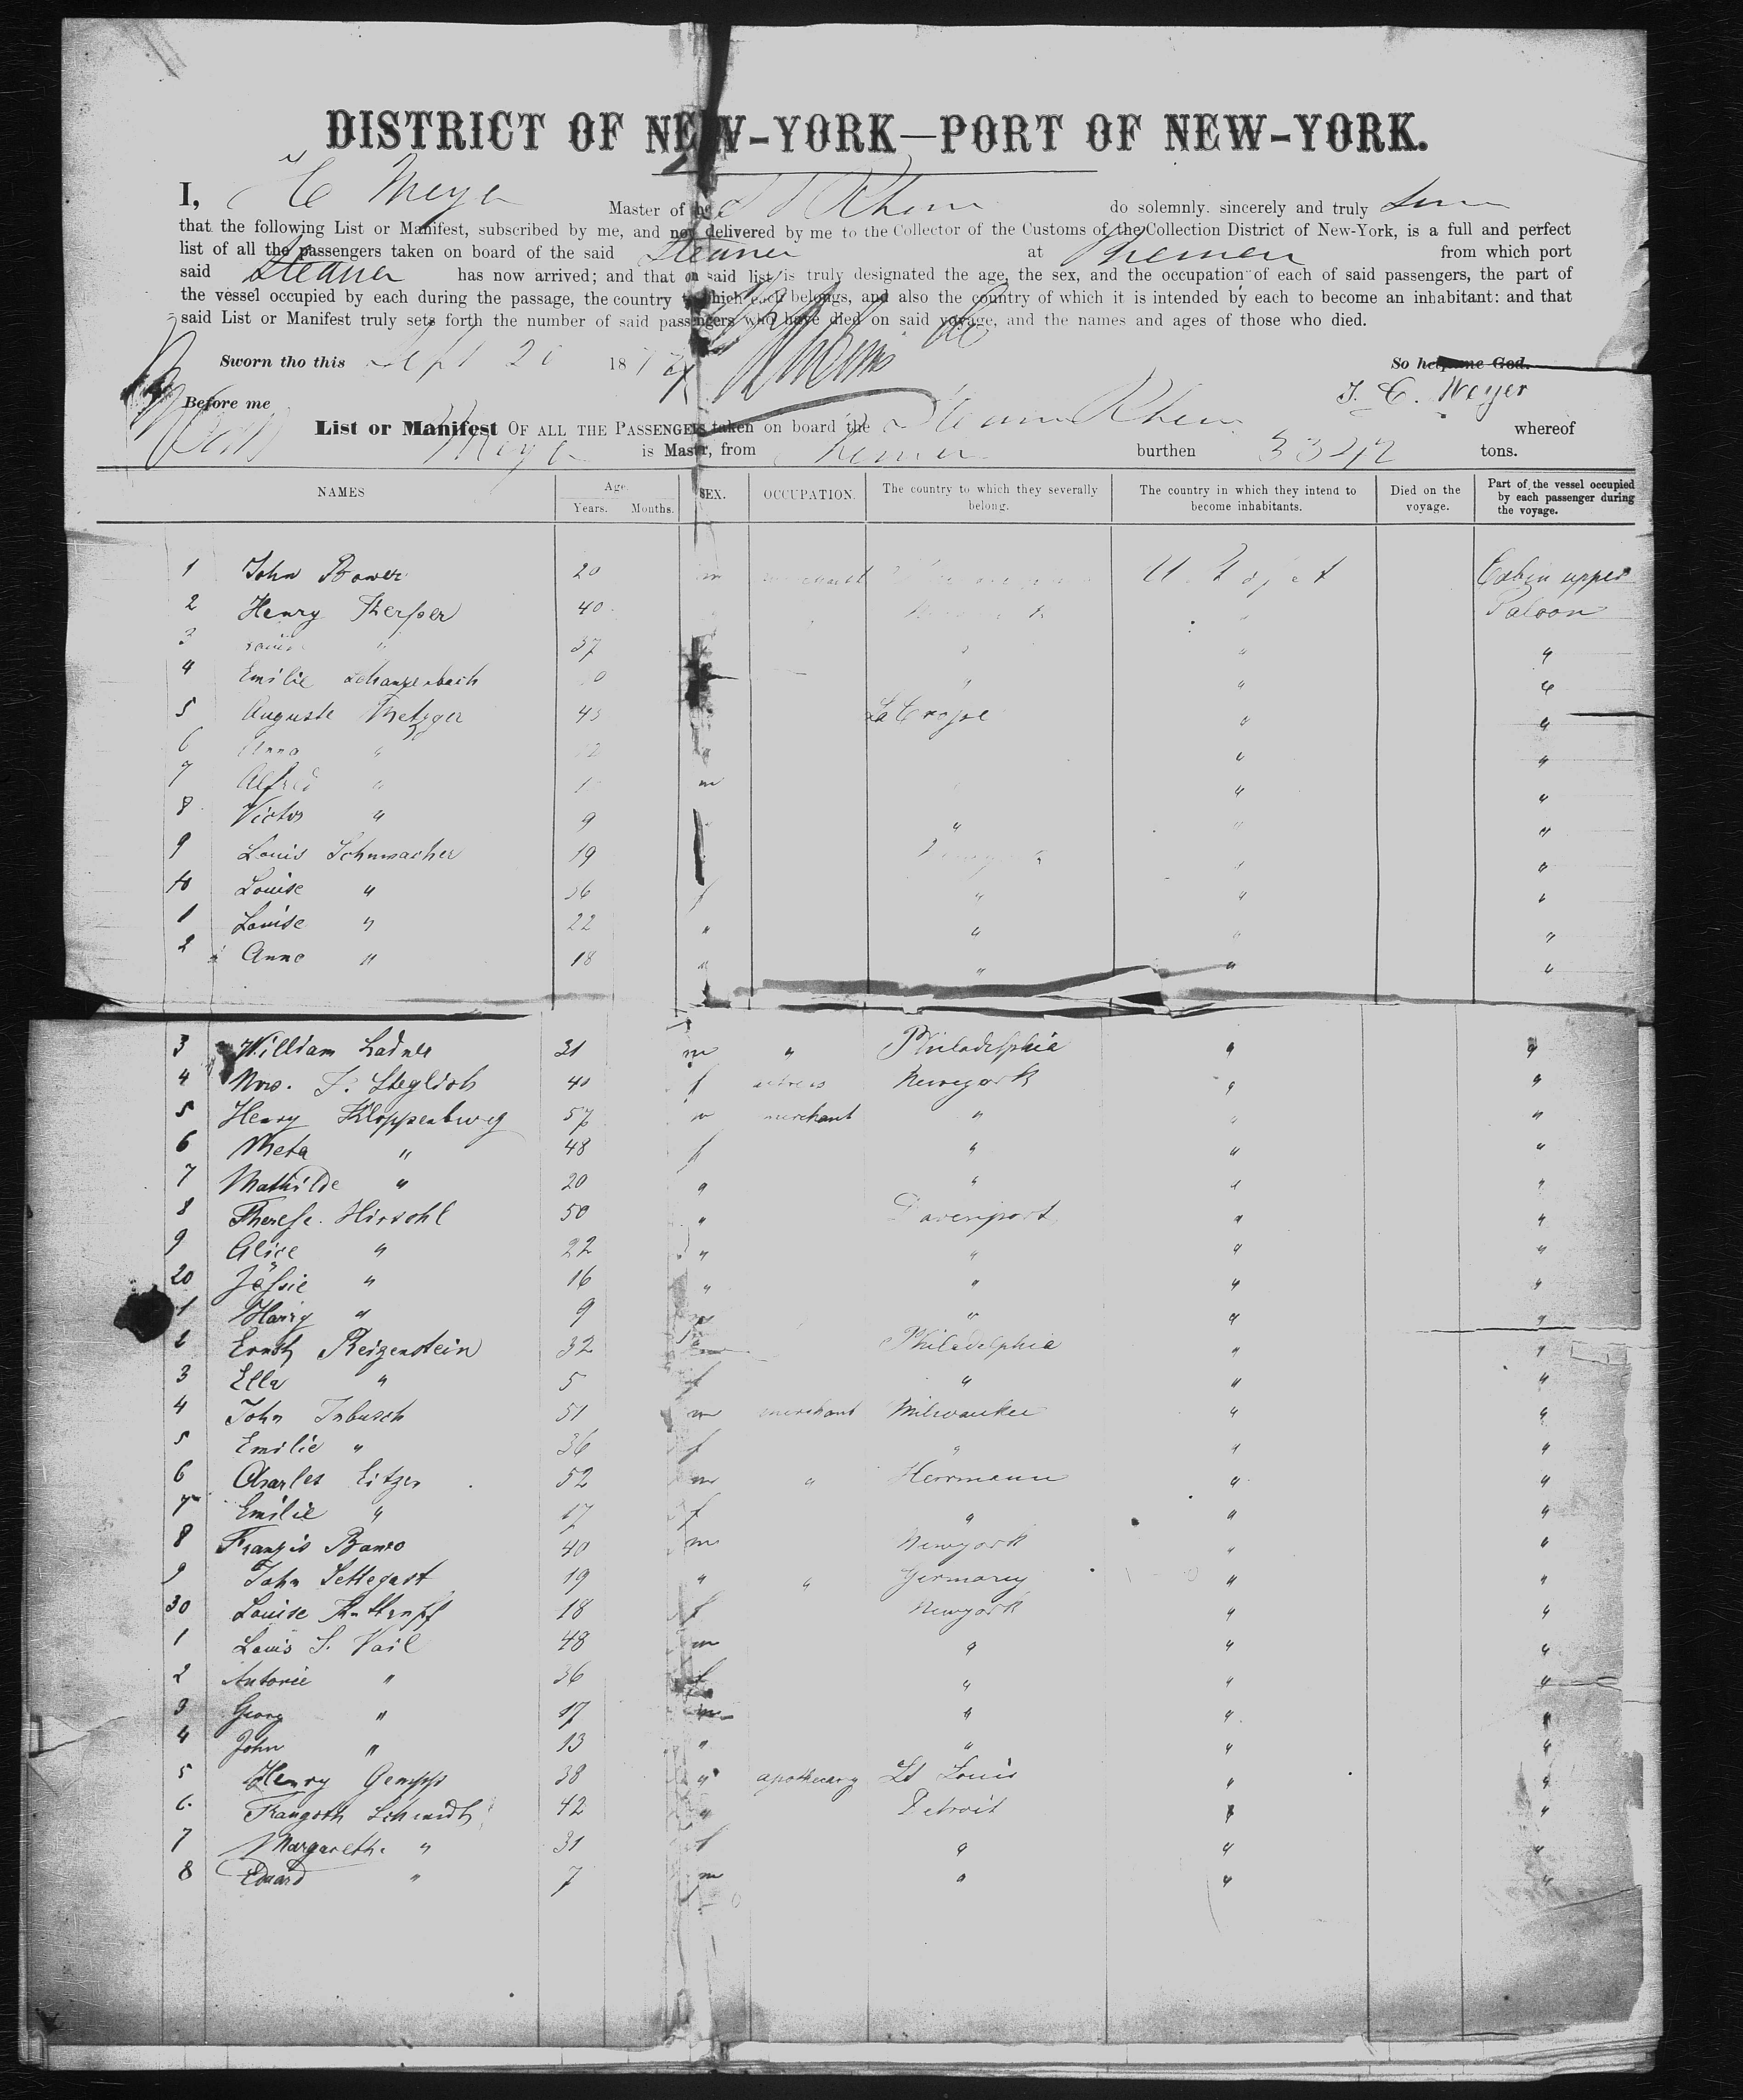 DISTRICT OF NEW-YORK—PORT OF NEW-YORK.
I, Meyer Master of the S S Rhein do solemnly, sincerely and truly
that the following List or Manifest, subscribed by me, and now delivered by me to the Collector of the Customs of the Collection District of New-York, is a full and perfect
list of all the passengers taken on board of the said Steamer at Bremen from which port
said Steamer has now arrived; and that on said list is truly designated the age, the sex, and the occupation of each of said passengers, the part of
the vessel occupied by each during the passage, the country to which each belongs, and also the country of which it is intended by each to become an inhabitant: and that
said List or Manifest truly sets forth the number of said passengers who have died on said voyage, and the names and ages of those who died.
Sworn tho this Sept 20 187 So help me God.
Before me Meyer
List or Manifest OF ALL THE PASSENGERS taken on board the Steamer Rhein whereof
Meyer is Master, from Bremen burthen tons.
NAMES Age. Years. Months. SEX. OCCUPATION. The country to which they severally belong. The country in which they intend to become inhabitants. Died on the voyage. Part of the vessel occupied by each passenger during the voyage.
1 John Bower 20 m merchant Cabin upper
2 Henry 40 Saloon
3 " 37 " "
4 Emilie Schanzenbach " " "
5 Auguste Metzger 43 La Crosse " "
6 Anna " " "
7 Alfred " m " "
8 Victor " 9 " " "
9 Louis Schumacher 19 " "
10 Louise " 36 f " " "
1 Louise " 22 " " " "
2 Anna " 18 " " " "
3 William Ladner 31 m " Philadelphia " "
4 Mrs. F. Steglich 40 f actress Newyork " "
5 Henry Kloppenburg 57 m merchant " " "
6 Meta " 48 f " " "
7 Mathilde " 20 " " " "
8 Therese Hirschl 50 " Davenport " "
9 Alice " 22 " " " "
20 Jessie " 16 " " " "
1 Harry " 9 m " " "
2 Ernst Reizenstein 32 m Philadelphia " "
3 Ella " 5 f " " "
4 John Inbusch 51 m merchant Milwaukee " "
5 Emilie " 36 f " " "
6 Charles Eitzen 52 m " Herrmann " "
7 Emilie " 17 f " " "
8 Franzis 40 m Newyork " "
9 John Settegast 19 " " Germany " "
30 Louise 18 f Newyork " "
1 Louis S. Vail 48 m " " "
2 Antonie " 36 f " " "
3 Georg " 17 m " " "
4 John " 13 " " " "
5 Henry Gempp 38 " apothecary St Louis " "
6 Traugott Schmidt 42 " Detroit " "
7 Margarethe " 31 f " " "
8 Eduard " 7 m " " "